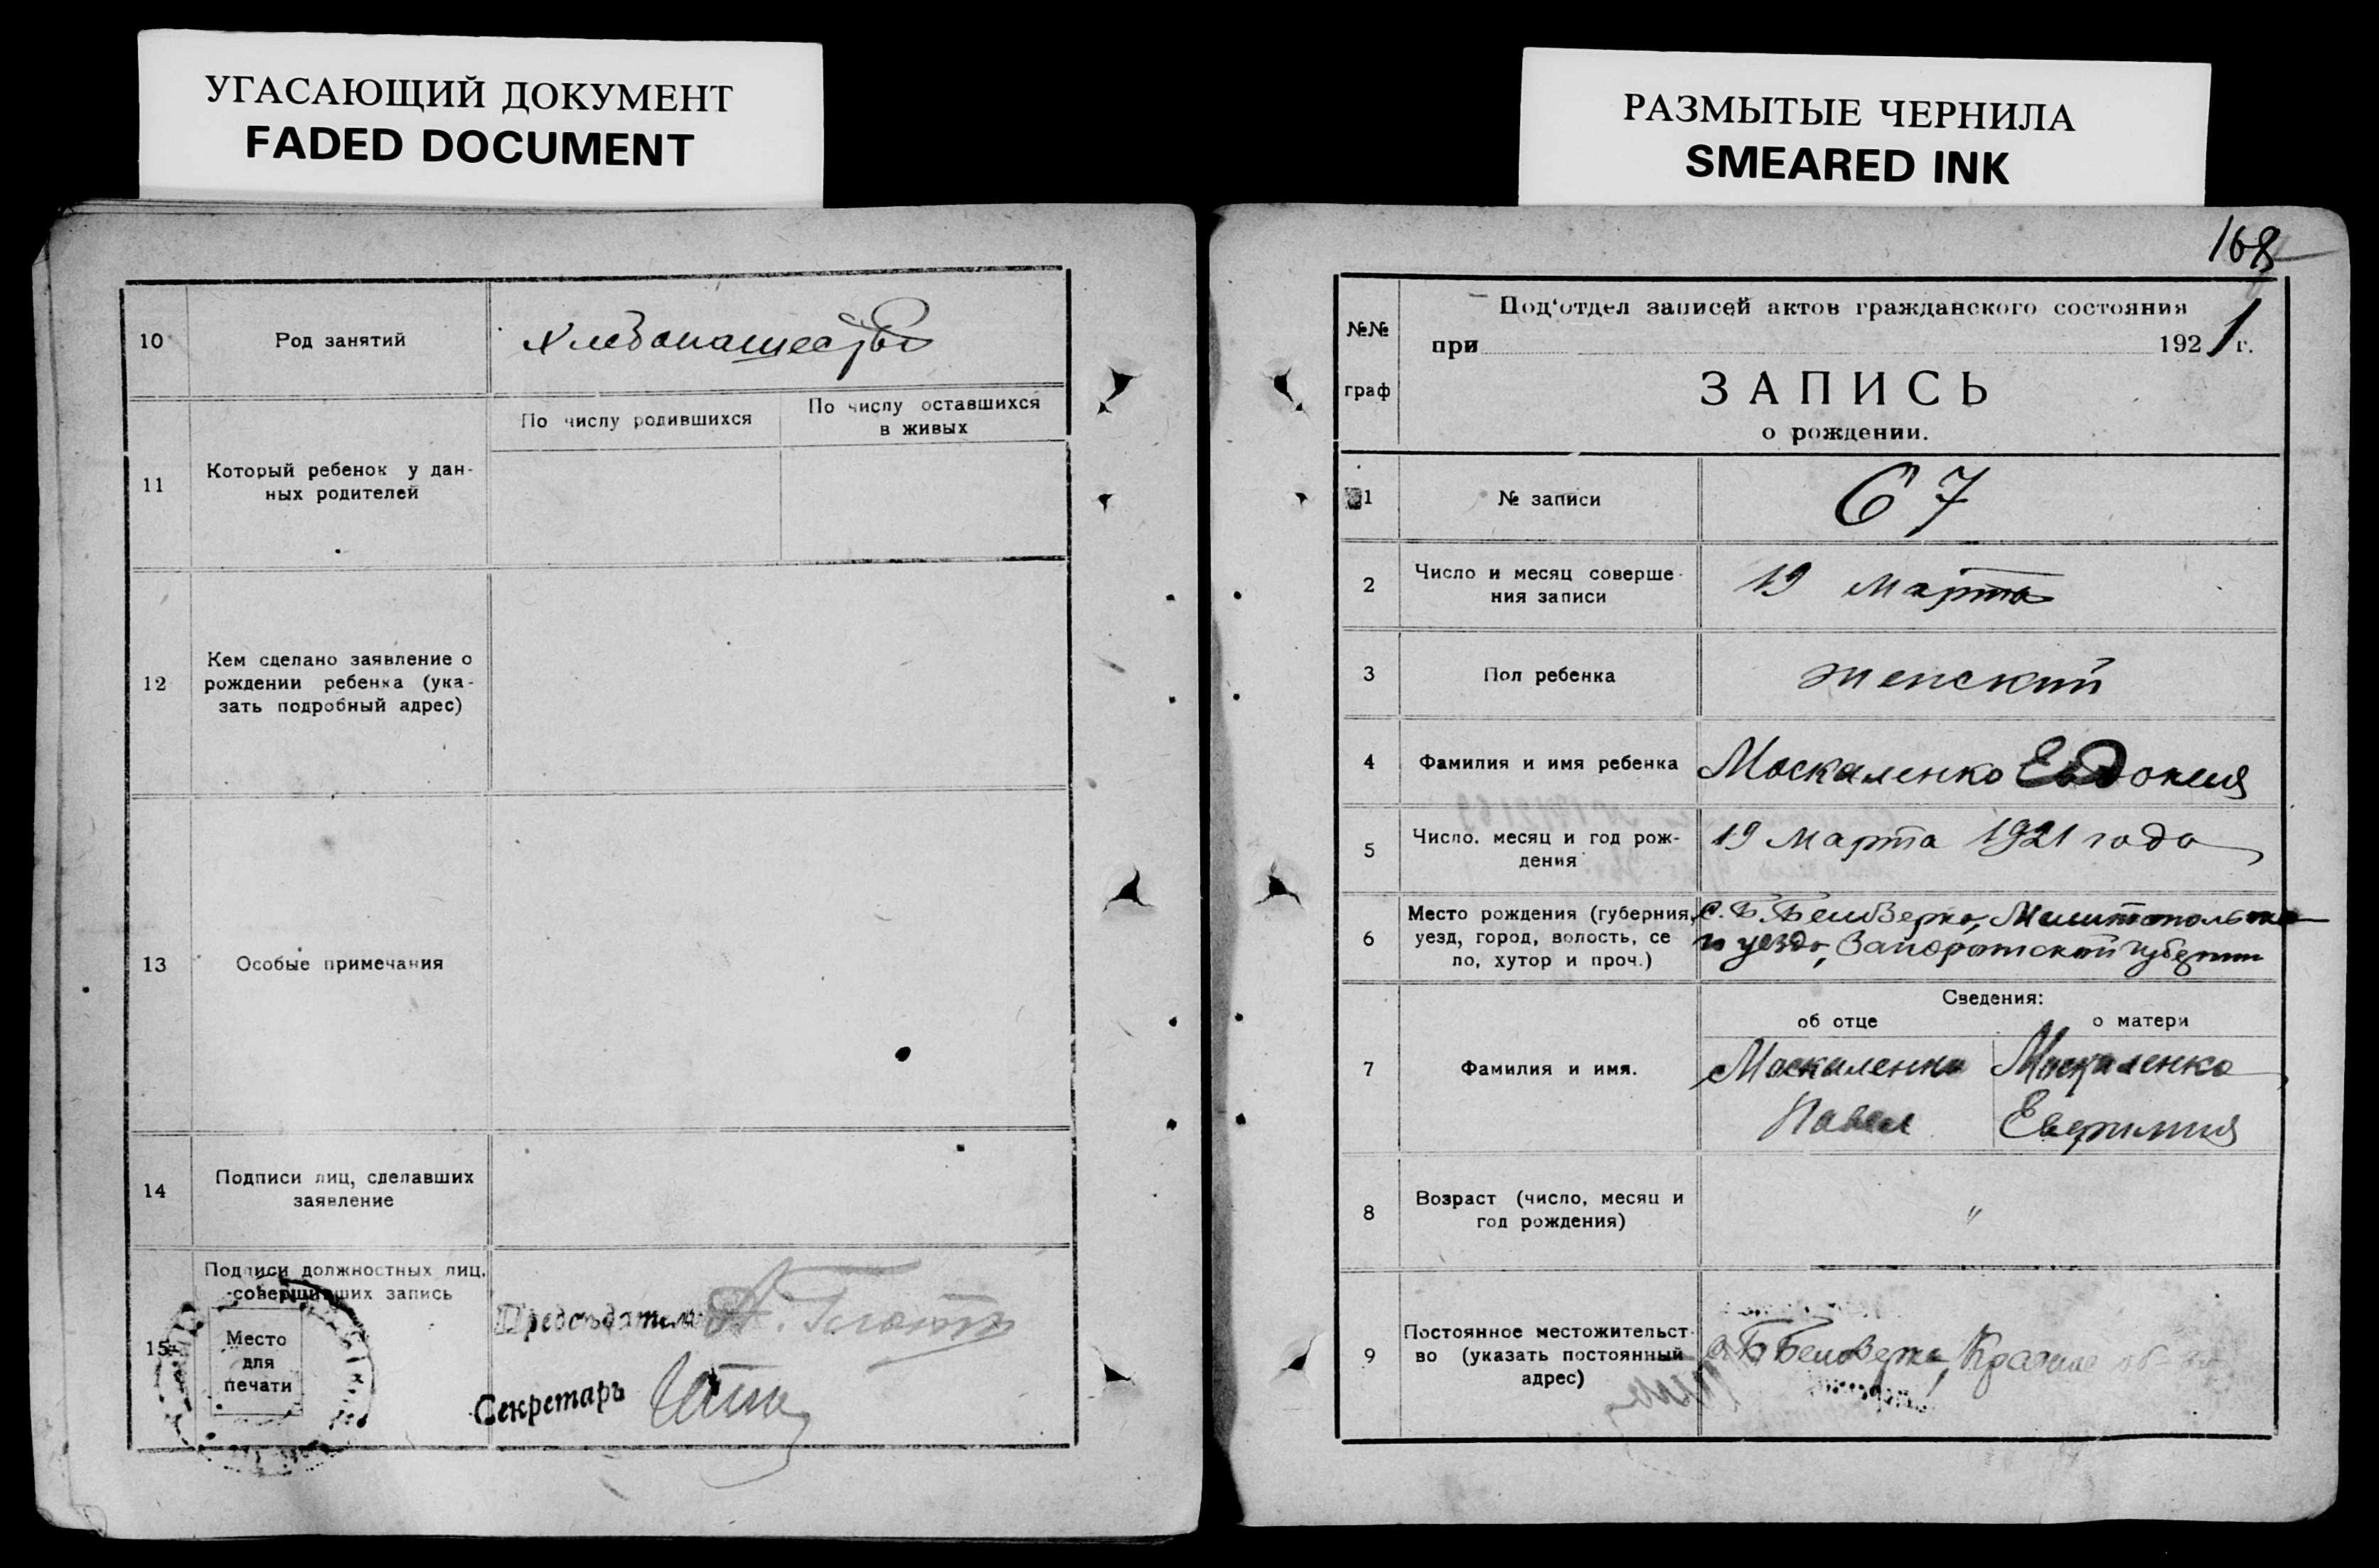 УГАСАЮЩИЙ ДОКУМЕНТ
FADED DOCUMENT
10
Род занятий
Хлебопашество
11
Который ребенок у дан-
ных родителей
По числу родившихся
По числу оставшихся
в живых
12
Кем сделано заявление о
рождении ребенка (ука-
зать подробный адрес)
13
Особые примечания
14
Подписи лиц, сделавших
заявление
15
Подписи должностных лиц,
совершивших запись
Место
для
печати
Председатель А.
Секретарь
РАЗМЫТЫЕ ЧЕРНИЛА
SMEARED INK
168
№№
граф
Под'отдел записей актов гражданского состояния
при 1921 г.
ЗАПИСЬ
о рождении.
1
№ записи
67
2
Число и месяц соверше-
ния записи
19 марта
3
Пол ребенка
женский
4
Фамилия и имя ребенка
Москаленко Евдокия
5
Число, месяц и год рож-
дения
19 марта 1921 года
6
Место рождения (губерния,
уезд, город, волость, се
ло, хутор и проч.)
с. Б. Белозерка, Мелитопольско
го уезда, Запорожской губернии
Сведения:
об отце
о матери
7
Фамилия и имя.
Москаленко
Павел
Москаленко
Евфимия
8
Возраст (число, месяц и
год рождения)
"
9
Постоянное местожительст-
во (указать постоянный
адрес)
с. Б Белозерка,